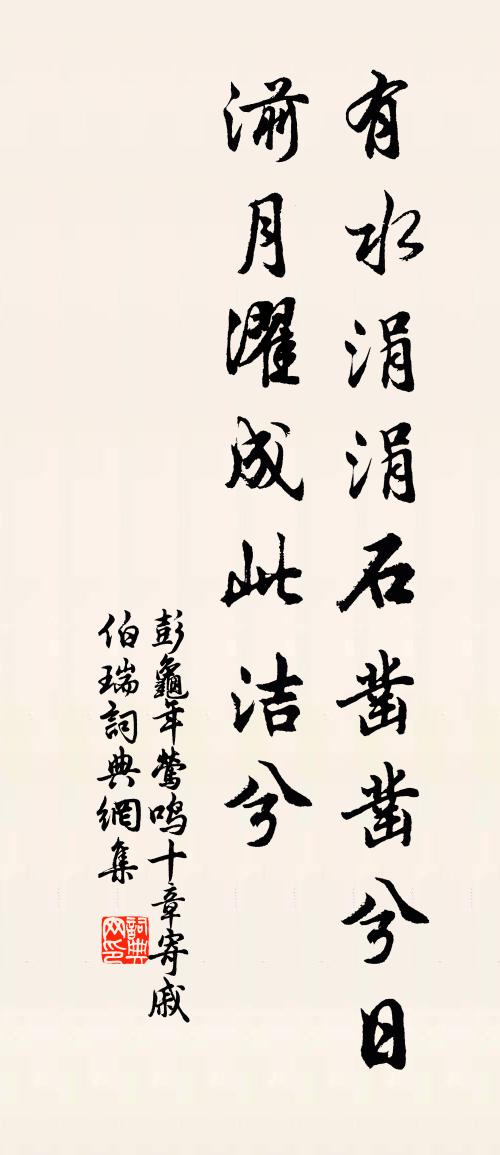 有水涓涓石凿凿兮日
湔月濯成此洁兮
彭龜年鶯鳴十章寄戚
伯瑞詞典網集
詞典
网印